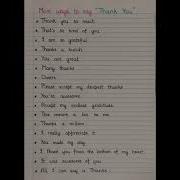 More ways to say "Thank You"
Thank you so much
That's so kind of you
I am so grateful
Thanks a bunch
You are great
Many thanks
Cheers
Please accept my deepest thanks
You're awesome
Accept my endless gratitude
You means a lot to me
Thanks a million
I really appreciate it
You made my day
I thank you from the bottom of my heart
It was awesome of you
All I can say is Thanks